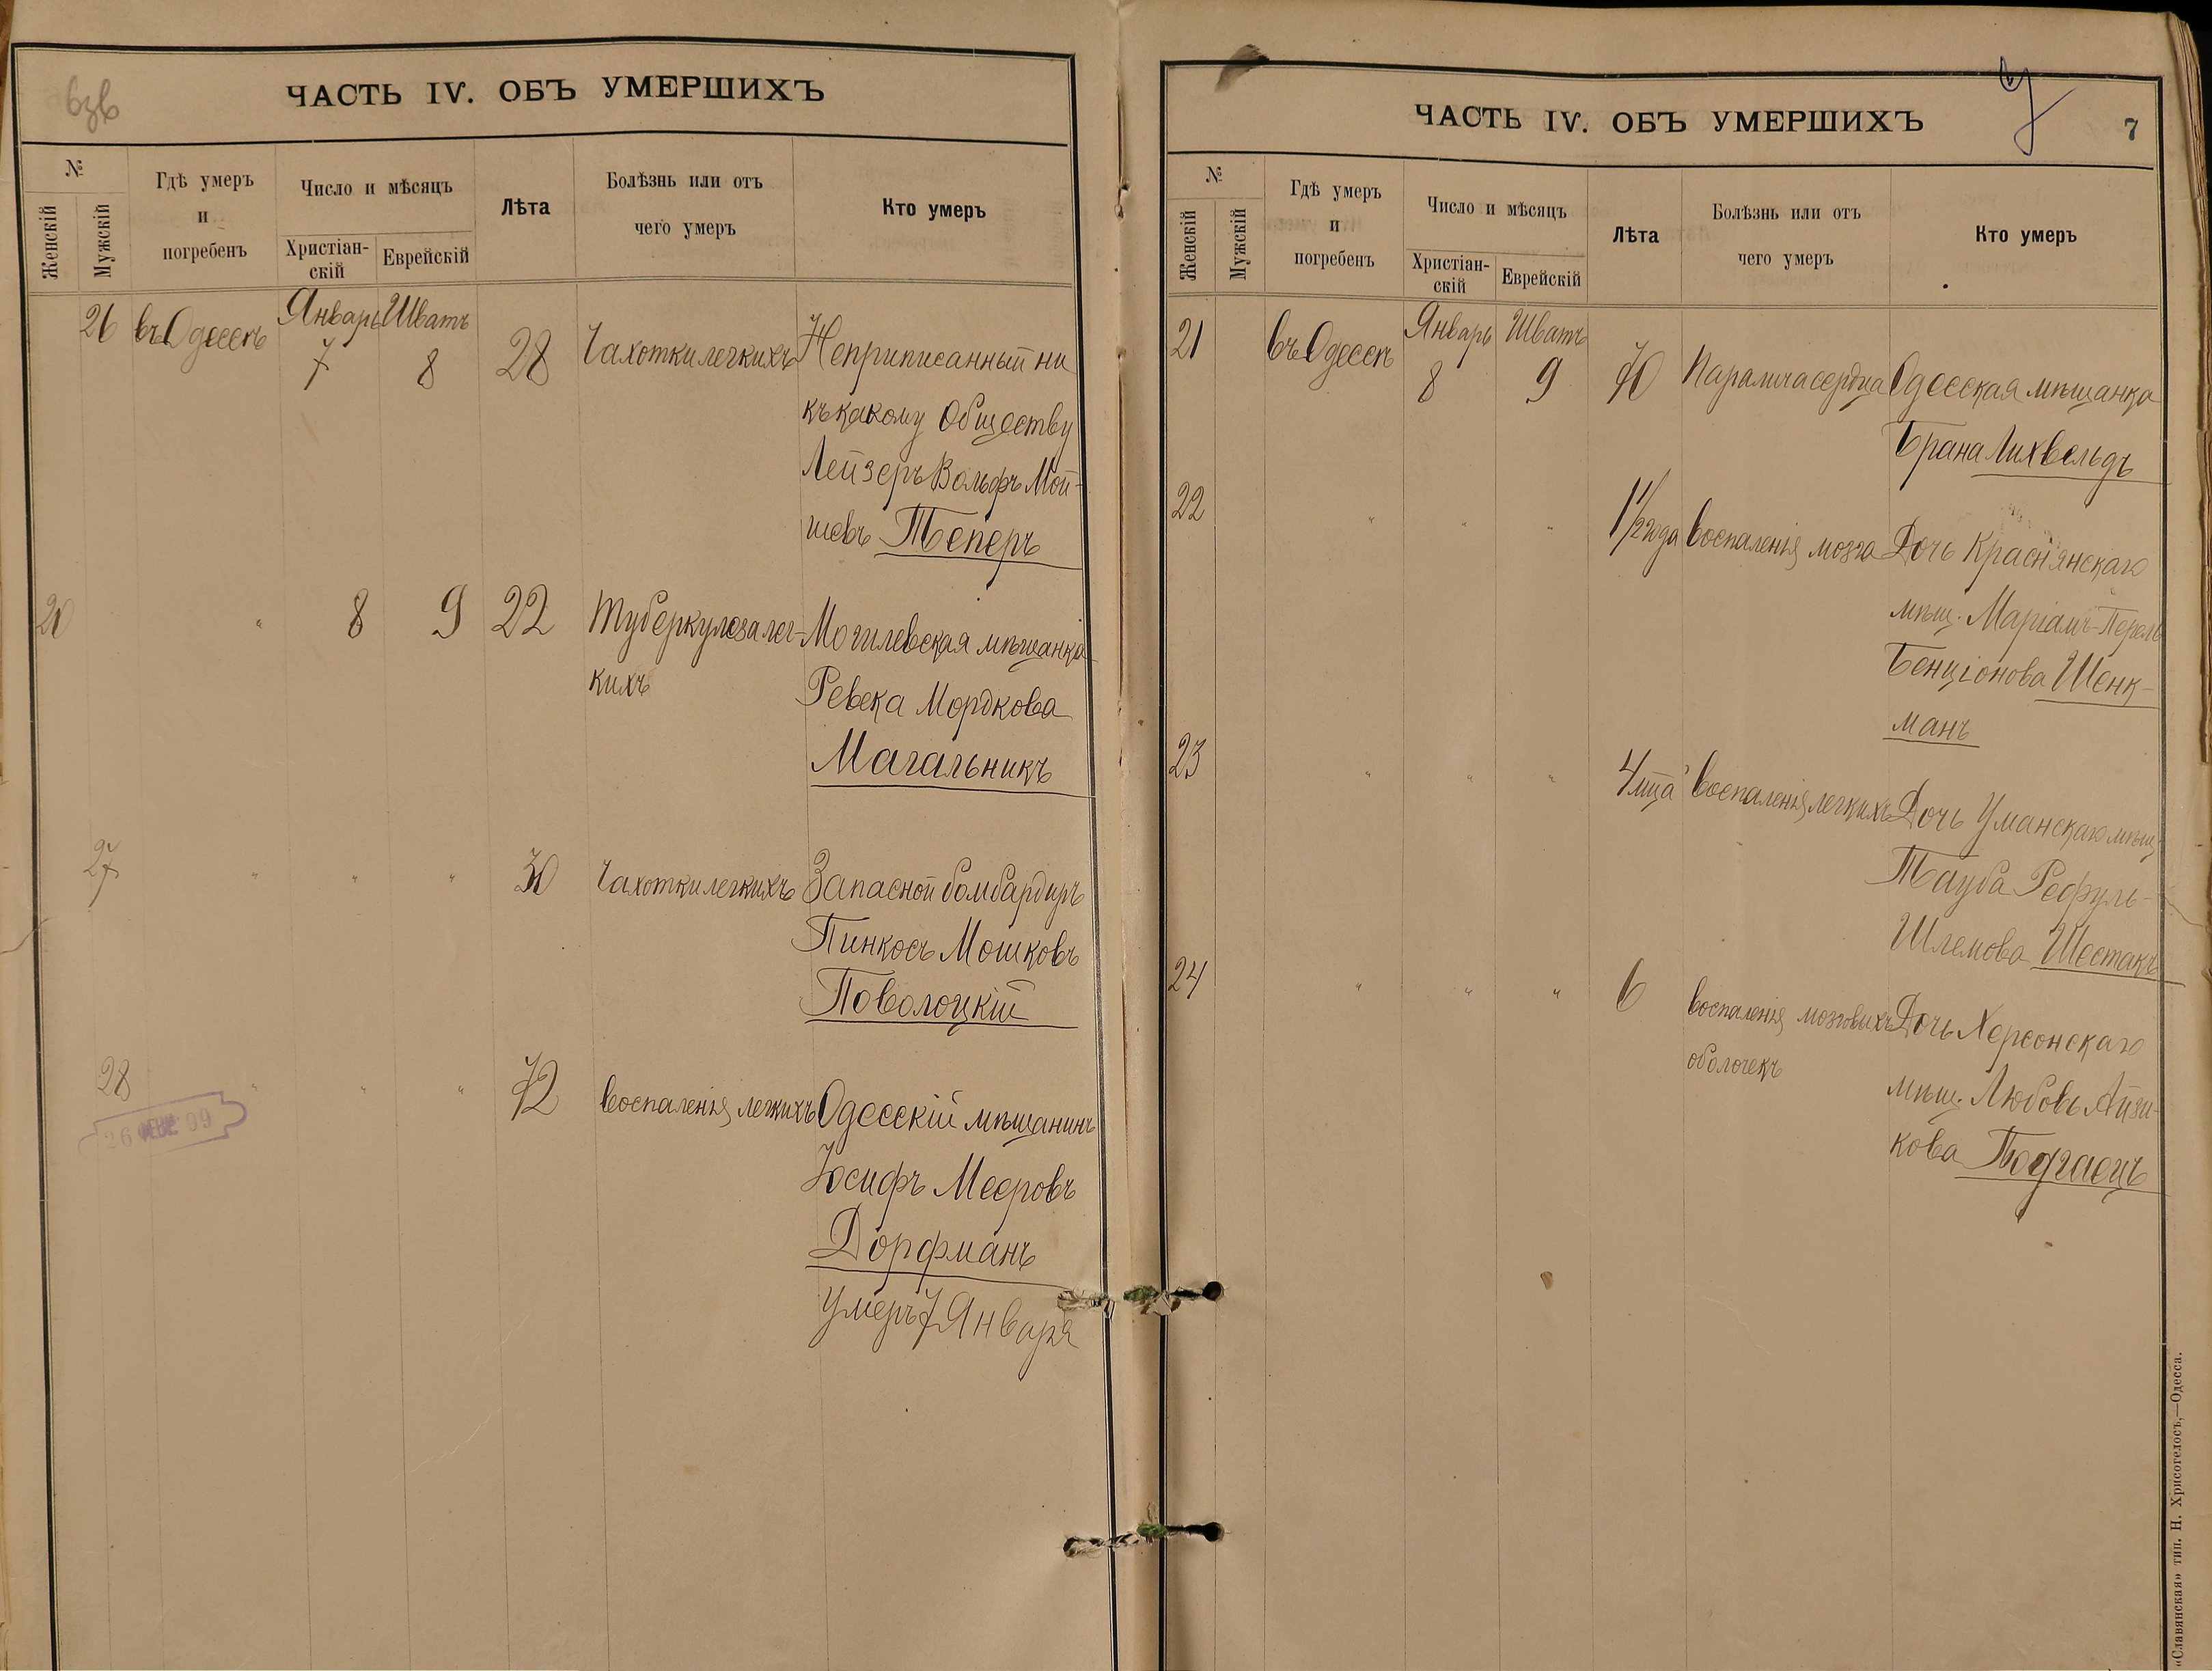 ЧАСТЬ IV. ОБЪ УМЕРШИХЪ
№
Женскій
Мужскій
Гдѣ умеръ
и
погребенъ
Число и мѣсяцъ
Христіан-
скій
Еврейскій
Лѣта
Болѣзнь или отъ
чего умеръ
Кто умеръ
26 въ Одессѣ Январь 7 Шватъ 8 28 Чахотки легкихъ Неприписанный ни
къ какому Обществу
Лейзеръ Вольфъ Мой-
шевъ Теперъ
20 " 8 9 22 Туберкулеза лег- Могилевская мѣщанка
кихъ Ревека Мордкова
Магальникъ
27 " " " 30 Чахотки легкихъ Запасной бомбардиръ
Пинкосъ Мошковъ
Поволоцкій
28 " " " 72 Воспаленія легкихъ Одесскій мѣщанинъ
26 ФЕВР 99
Іосифъ Мееровъ
Дорфманъ
умеръ 7 Января
ЧАСТЬ IV. ОБЪ УМЕРШИХЪ
7
№
Женскій
Мужскій
Гдѣ умеръ
и
погребенъ
Число и мѣсяцъ
Христіан-
скій
Еврейскій
Лѣта
Болѣзнь или отъ
чего умеръ
Кто умеръ
21 въ Одессѣ Январь 8 Шватъ 9 70 Паралича сердца Одесская мѣщанка
Брана Лихвельдъ
22 " " " 1 1/2 года Воспаленія мозга Дочь Краснянскаго
мѣщ. Маріамъ-Перель
Бенціонова Шенк-
манъ
23 " " " 4 мца Воспаленія легкихъ Дочь Уманскаго мѣщ.
Тауба Рефуль-
Шлемова Шестакъ
24 " " " 6 воспаленія мозговыхъ Дочь Херсонскаго
оболочекъ мѣщ. Любовь Айзи-
кова Подгаецъ
«Славянская» тип. Н. Хрисогелосъ,—Одесса.